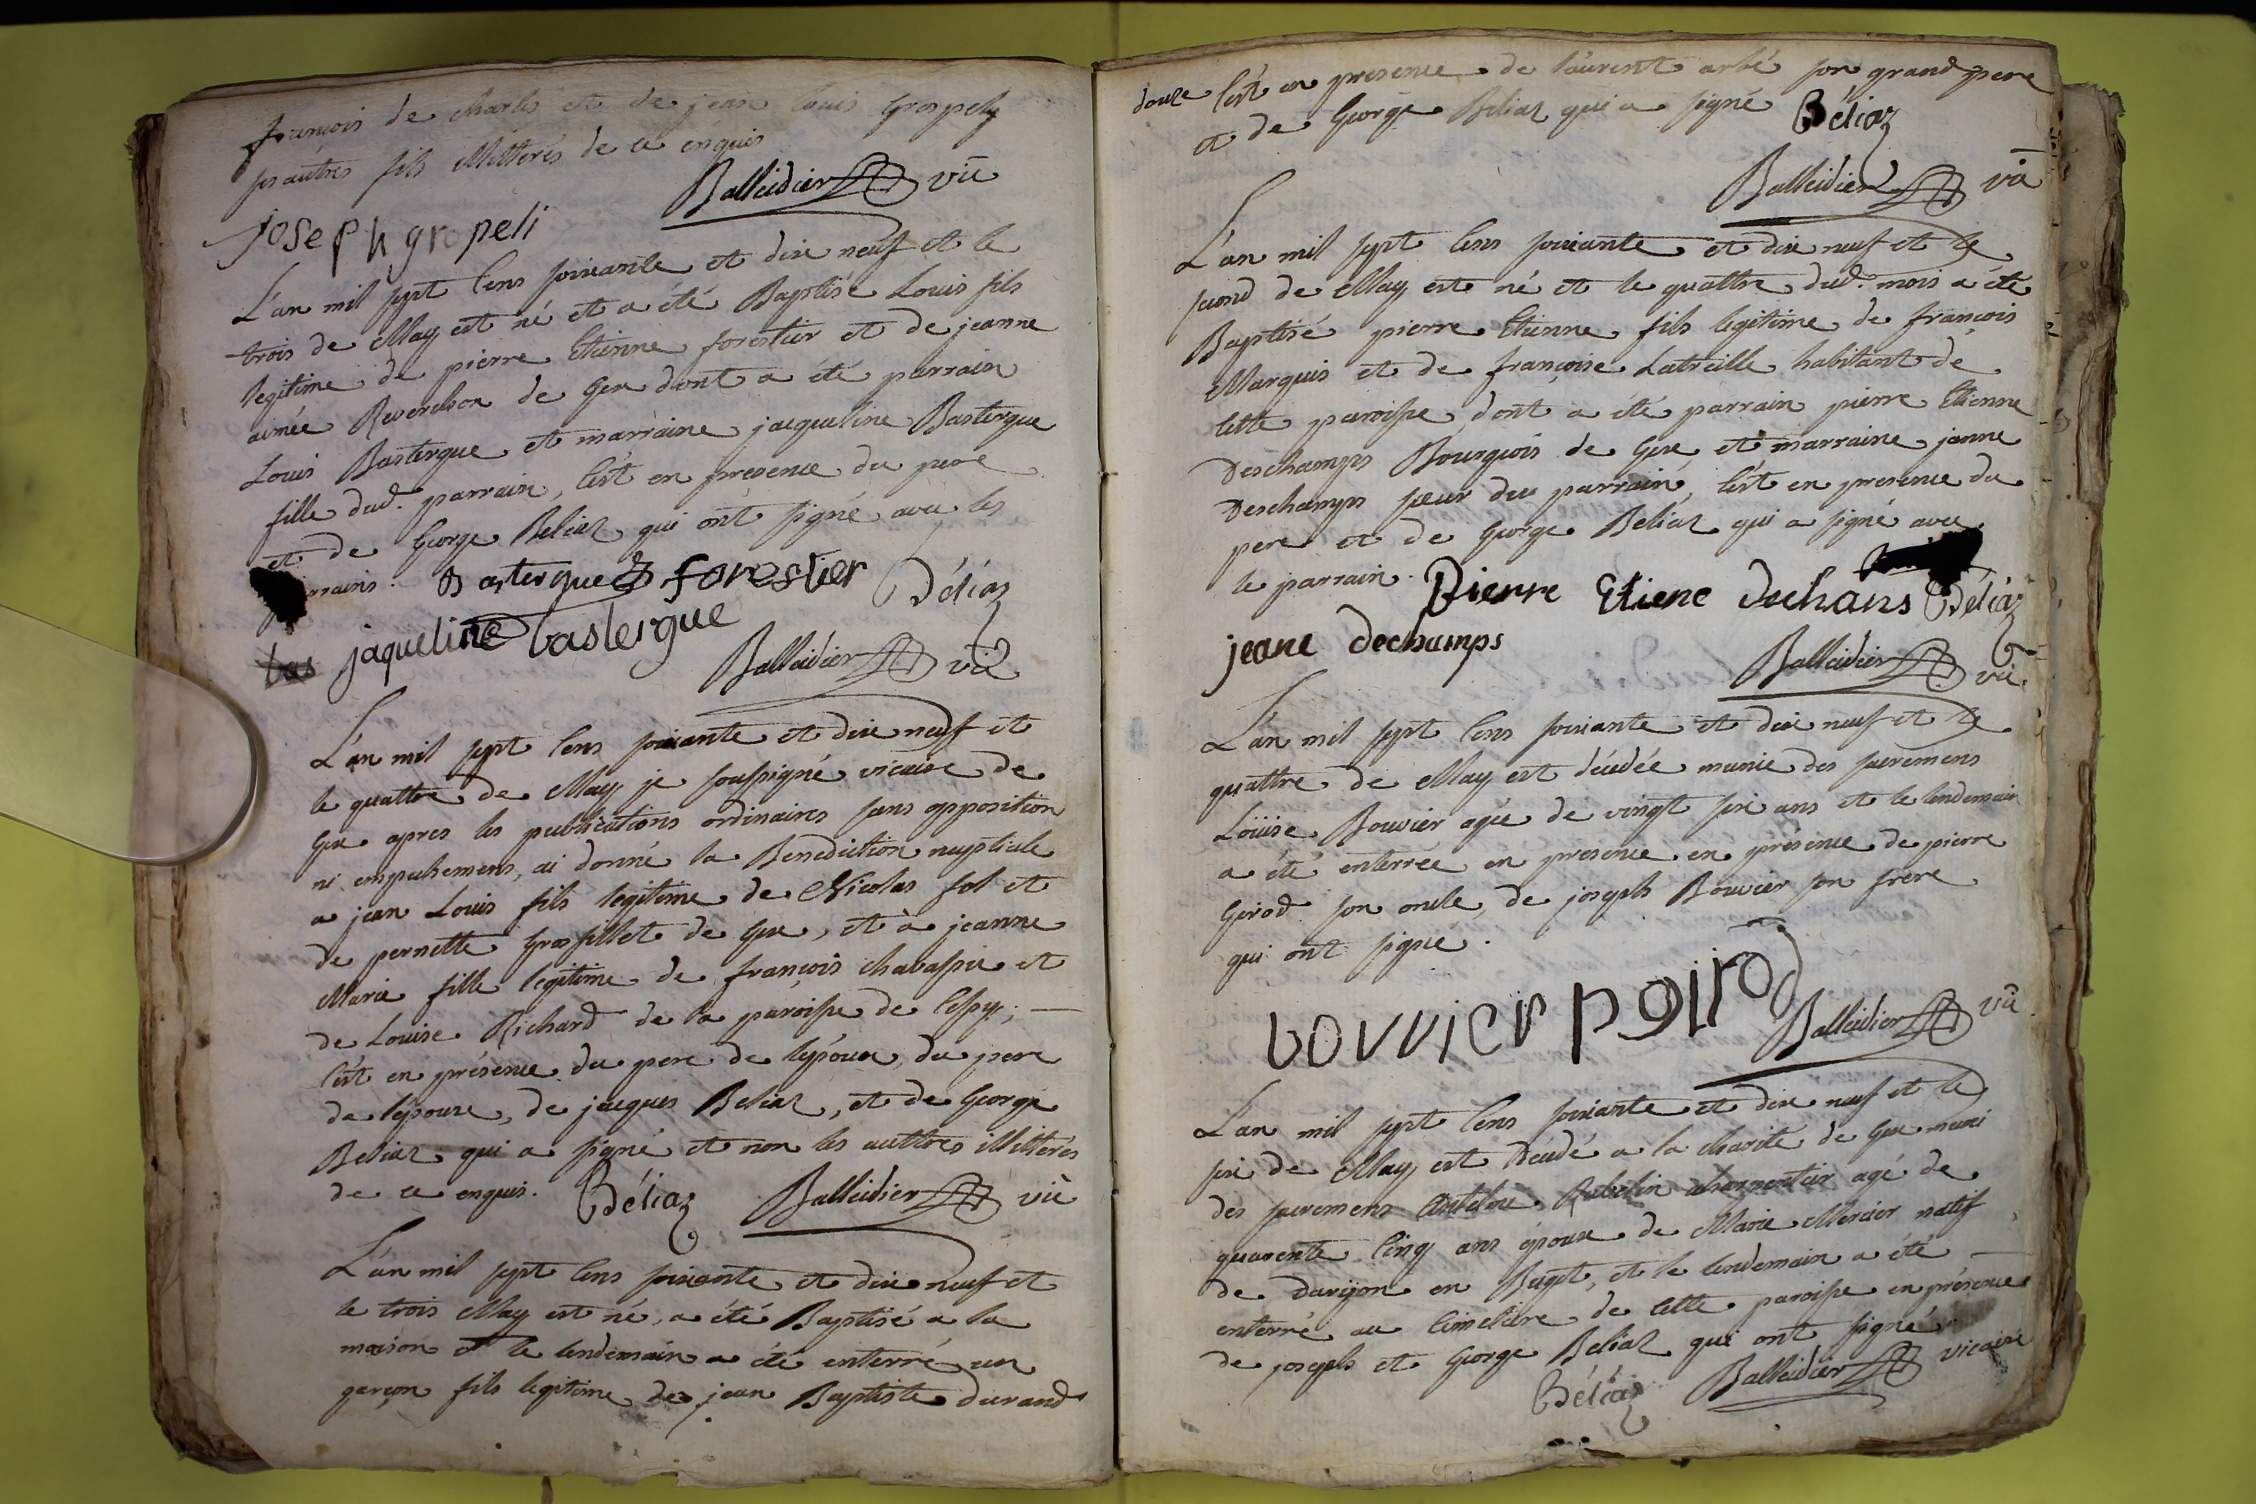 françois de charles et de jean louis Grospely
ses autres fils illitterés de ce enquis
Balleidier vic
joseph gropeli
L'an mil sept cens soixante et dix neuf et le
trois de May est né et a été Baptisé Louis fils
legitime de pierre Etienne forestier et de jeanne
aimée Reverchon de Gex dont a été parrain
Louis Bastergue et marraine jacqueline Bastergue
fille dud. parrain, c'est en presence du pere
et de George Beliaz qui ont signé avec les
parrains. Bastergue forestier Béliaz
bas jaqueline bastergue
Balleidier vic
L'an mil sept cens soixante et dix neuf et
le quattre de May je soussigné vicaire de
Gex apres les publications ordinaires sans opposition
ni empechemens, ai donné la Benediction nuptiale
a jean Louis fils legitime de Nicolas fol et
de pernette Grosfillet de Gex, et à jeanne
Marie fille legitime de françois chavassie et
de Louise Richard de la paroisse de Cessy;
c'est en présence du pere de l'époux, du pere
de l'épouse, de jacques Beliaz, et de George
Beliaz qui a signé et non les auttres illitterés
de ce enquis. Béliaz Balleidier vic
L'an mil sept cens soixante et dix neuf et
le trois May est né, a été Baptisé a la
maison et le lendemain a été enterré un
garçon fils legitime de jean Baptiste durand
douze c'est en presence de laurent arbé son grand pere
et de George Beliaz qui a signé Béliaz
Balleidier vic
L'an mil sept cens soixante et dix neuf et le
second de May est né et le quattre dud. mois a été
Baptisé pierre Etienne fils legitime de françois
Marquis et de françoise Latreille habitant de
cette paroisse, dont a été parrain pierre Etienne
Deschamps Bourgeois de Gex et marraine janne
Deschamps sœur du parrain, c'est en presence du
pere et de George Beliaz qui a signé avec
le parrain. Pierre Etiene dechans Béliaz
jeane dechamps
Balleidier vic.
L'an mil sept cens soixante et dix neuf et le
quattre de May est décédée munie des sacremens
Loüise Bouvier agée de vingt six ans et le lendemain
a été enterrée en presence en présence de pierre
Girod son oncle, de joseph Bouvier son frere
qui ont signé.
bouvier p girod
Balleidier vic
L'an mil sept cens soixante et dix neuf et le
six de May est décédé a la charité de Gex muni
des sacremens Antelme Ravelin charpentier agé de
quarente cinq ans époux de Marie Mercier natif
de en Buget, et le lendemain a été
enterré au cimetiere de cette paroisse en présence
de joseph et George Beliaz qui ont signé
Béliaz Balleidier vicaire